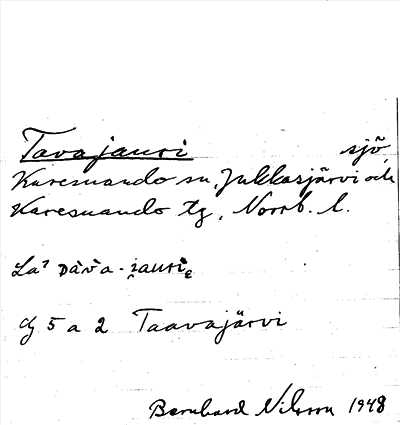 Tavajauri sjö
Karesuando sn, Jukkasjärvi och
Karesuando tg, Norrb. l.
La⁷ Dàva-i̯auri̯e
dj 5 a 2 Taavajärvi
Bernhard Nilsson 1948